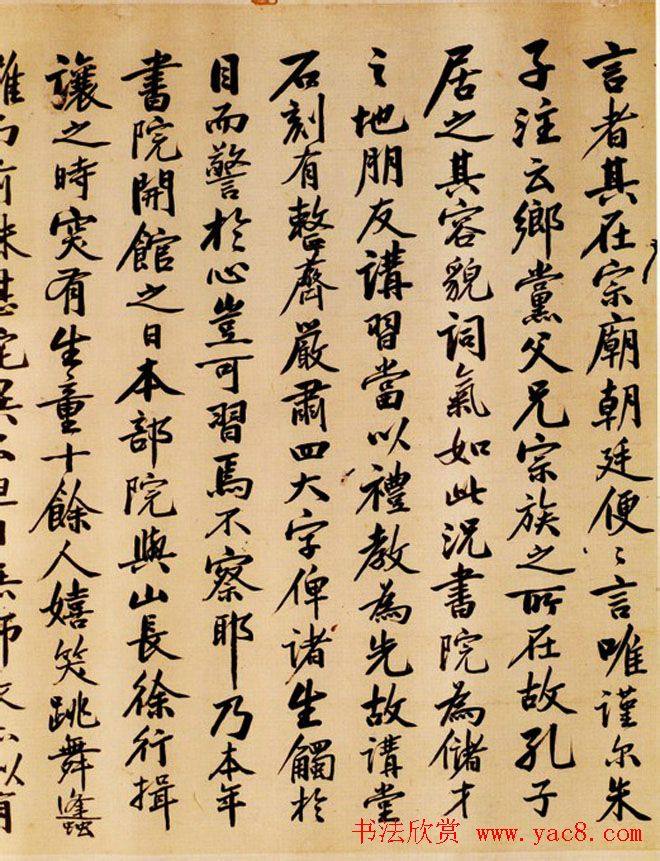 言者其在宗廟朝廷便〻言唯謹尔朱
子注云鄉黨父兄宗族之所在故孔子
居之其容貌詞氣如此況書院為儲才
之地朋友講習當以禮教為先故講堂
石刻有整齊嚴肅四大字俾諸生觸於
目而警於心豈可習焉不察耶乃本年
書院開館之日本部院與山長徐行揖
讓之時突有生童十餘人嬉笑跳舞蠭
书法欣赏 www.yac8.com